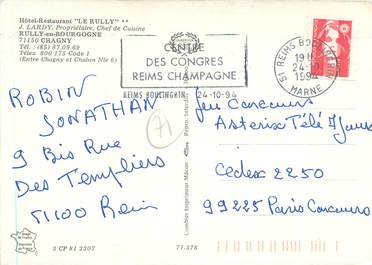 Hôtel-Restaurant "LE RULLY" **
J. LARDY, Propriétaire, Chef de Cuisine
RULLY-en-BOURGOGNE
71150 CHAGNY
Tél. : (85) 87.09.69
Télex 800 175 Code 1
(Entre Chagny et Chalon Nle 6)
CENTRE
DES CONGRES
REIMS CHAMPAGNE
REIMS BOULINGRIN 24-10-94
51 REIMS BOULINGRIN
19 H
24-10
1994
MARNE
ROBIN
JONATHAN
9 Bis Rue
Des Templiers
51100 Reim
71
Jeu Concours
Asterix Télé 7 Jours
Cedex 2250
99225 Paris Concours
Combier Imprimeur Mâcon
3 CP 81 2307
71.378